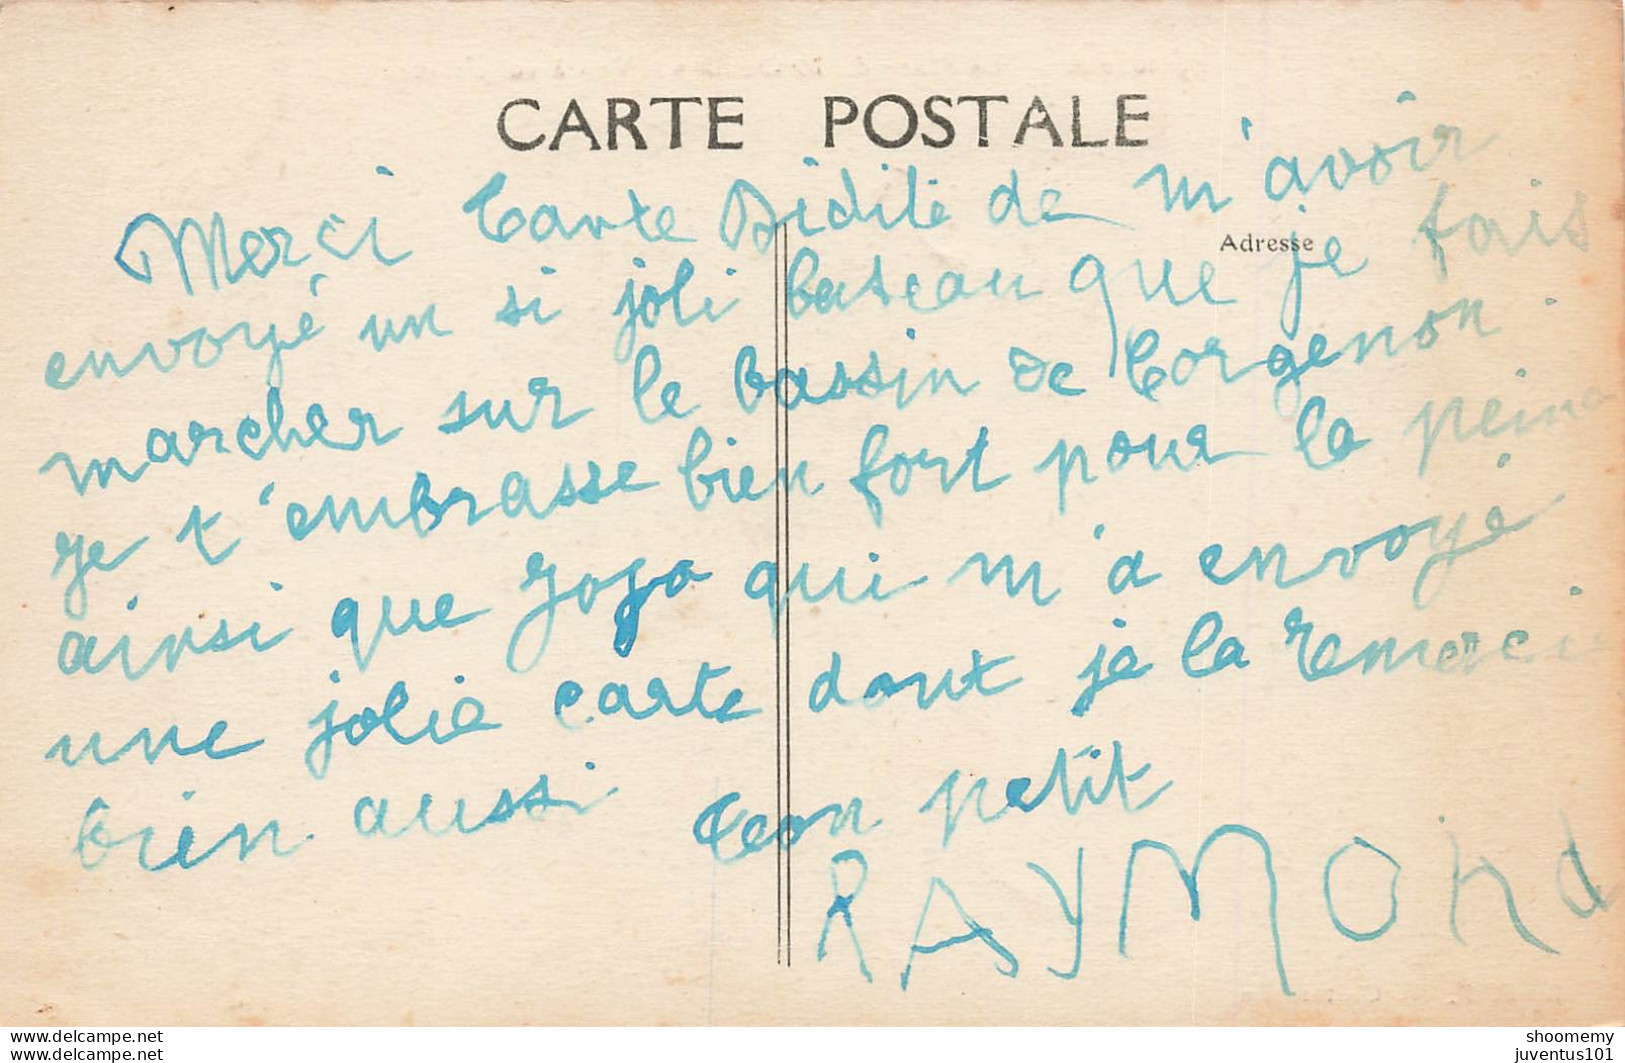 CARTE POSTALE
Adresse
Merci Tante Didile de m'avoir
envoyé un si joli bateau que je fais
marcher sur le bassin de Corgenon.
Je t'embrasse bien fort pour la peine
ainsi que Jojo qui m'a envoyé
une jolie carte dont je la remercie
bien aussi Ton petit
RAYMOND
delcampe.net
shoomemy
delcampe.net
juventus101